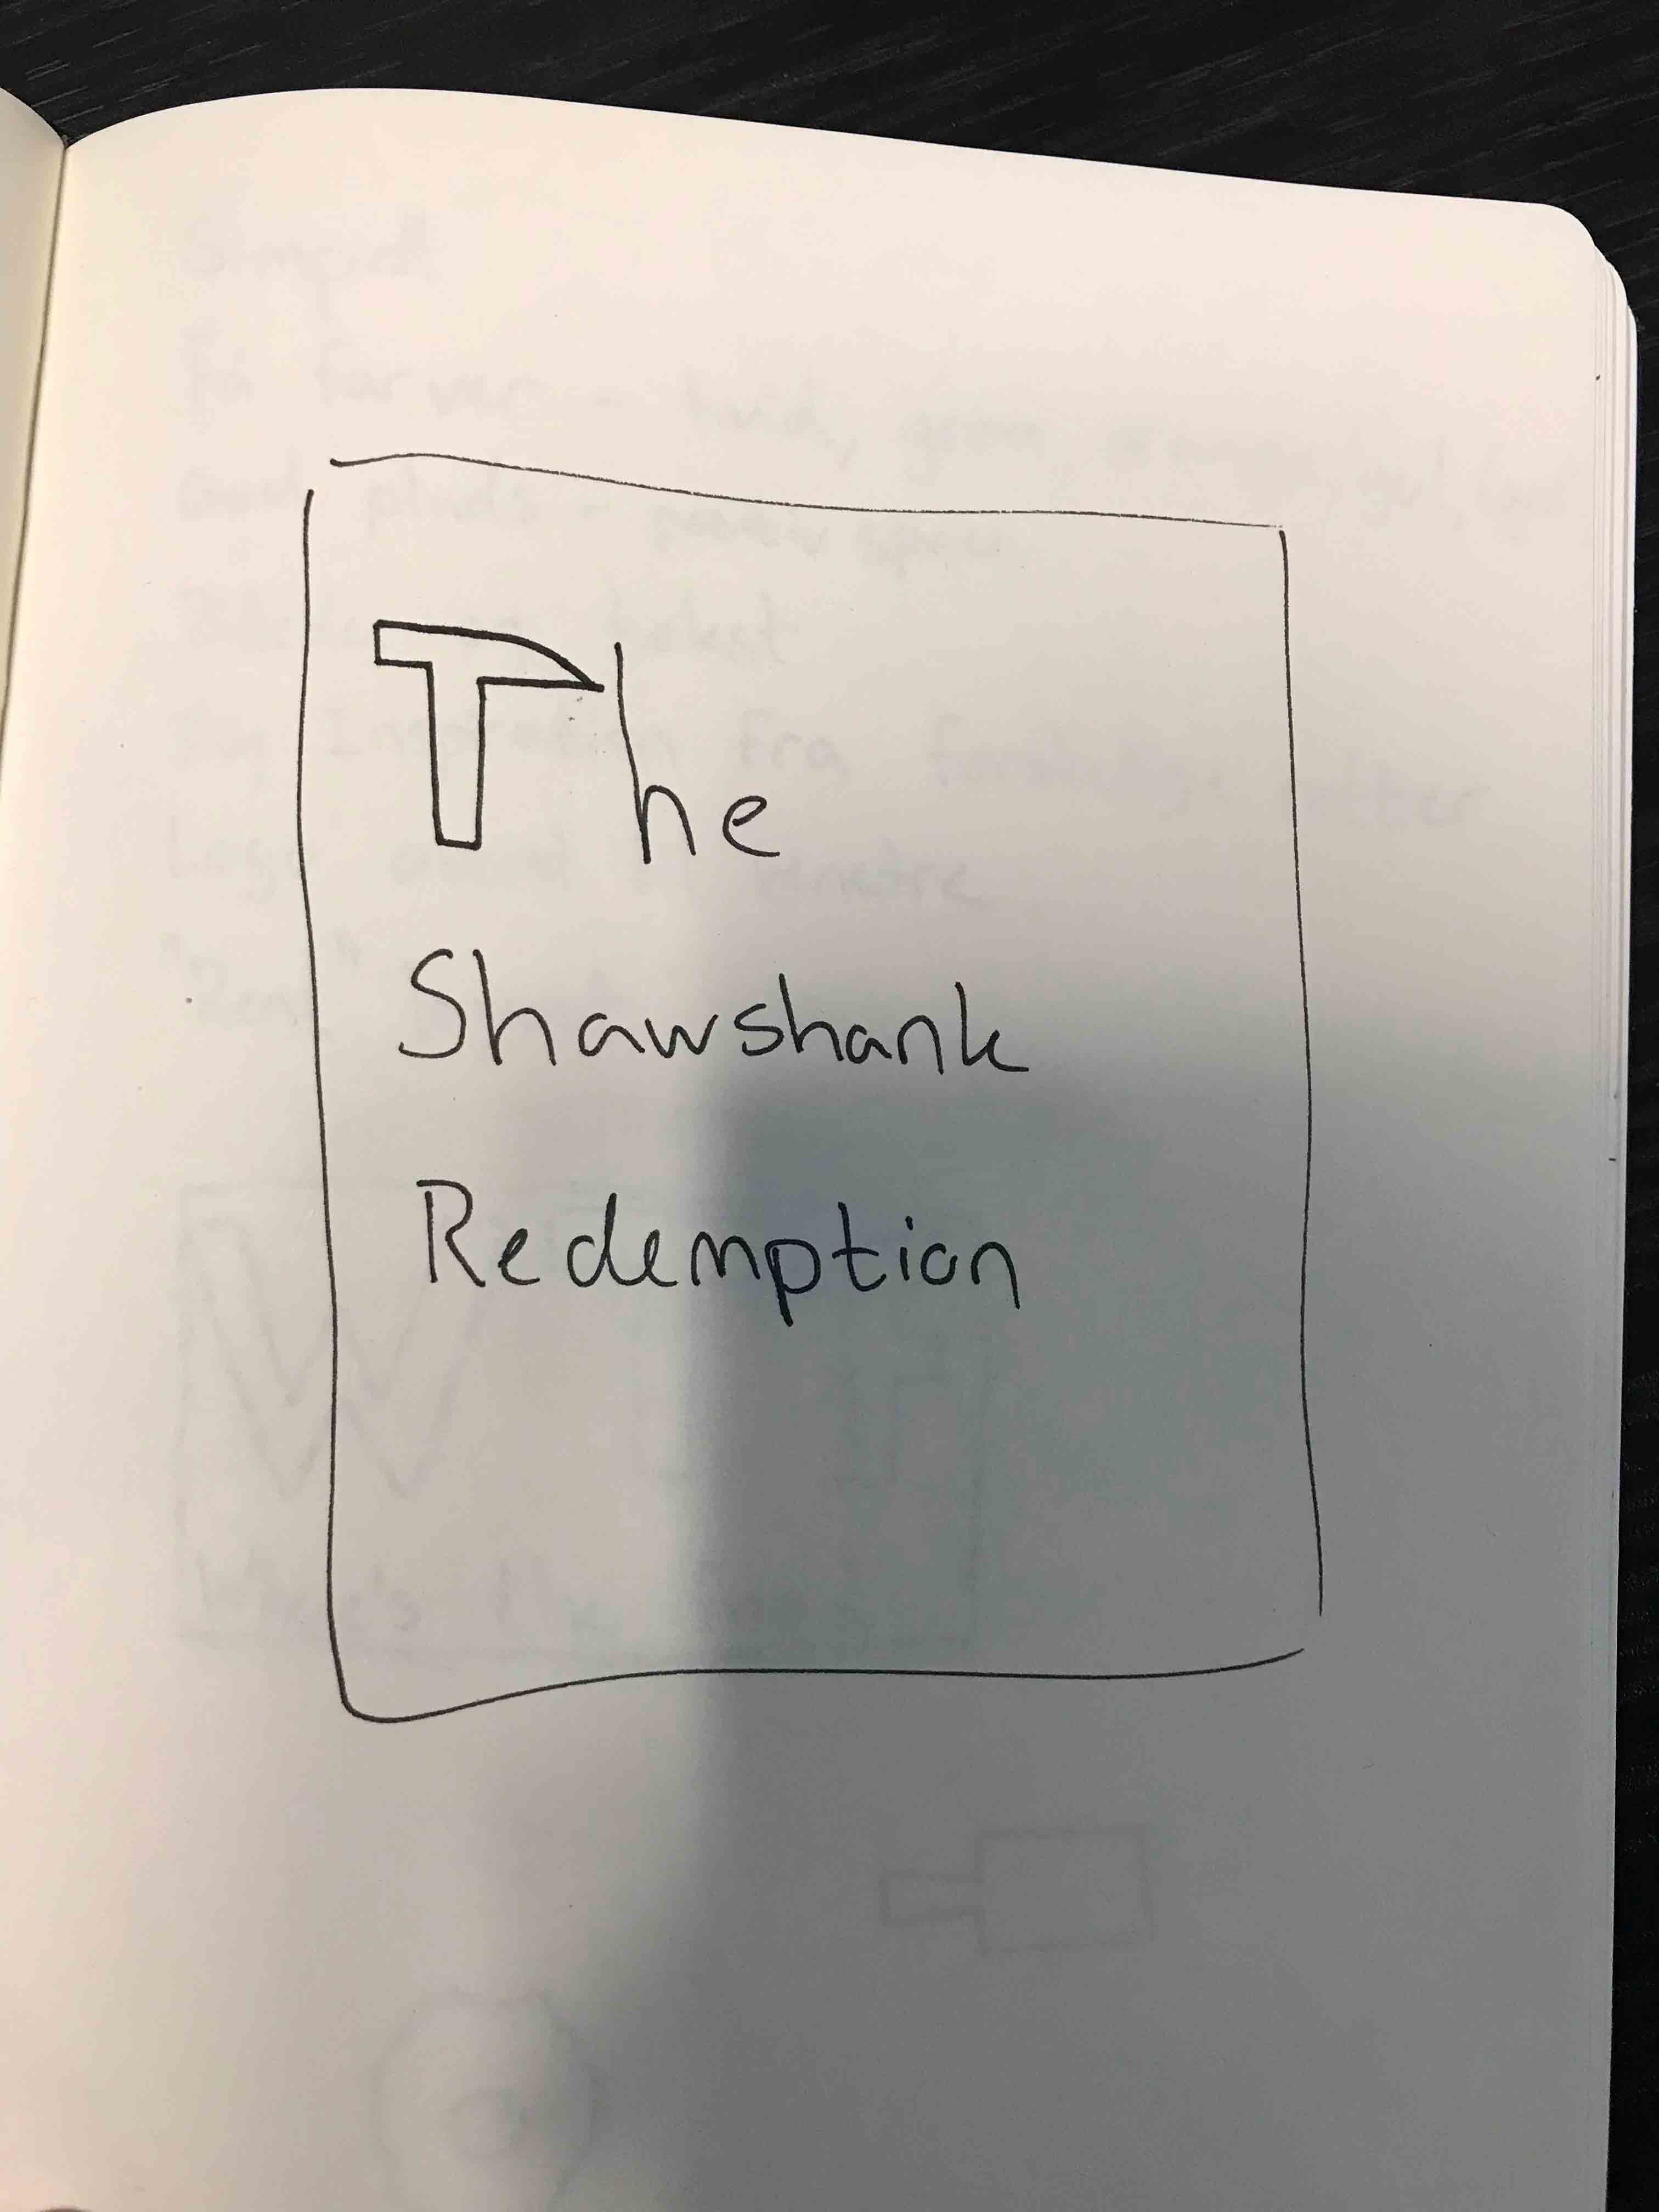 The
Shawshank
Redemption